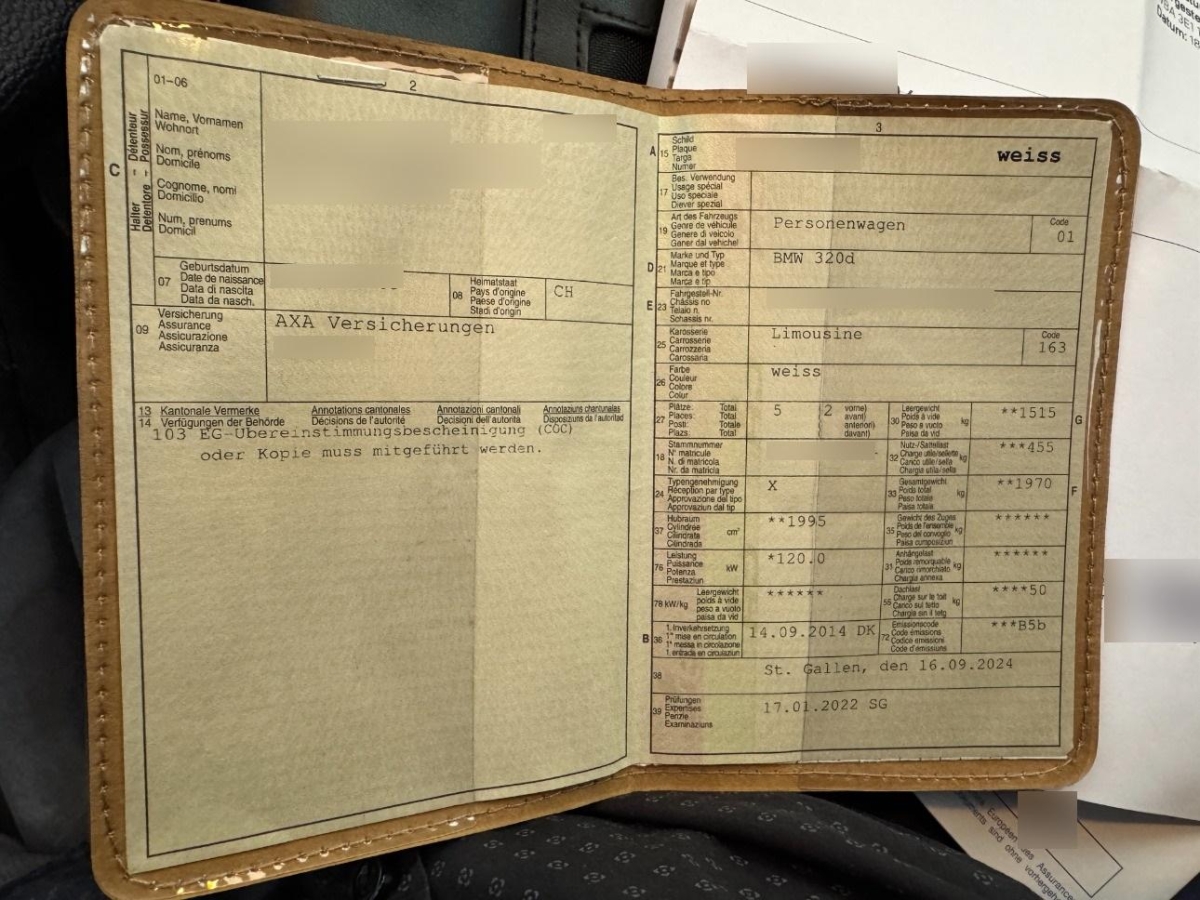 2
01–06
Name, Vornamen
Wohnort
Nom, prénoms
Domicile
Cognome, nomi
Domicilio
Num, prenums
Domicil
C
Halter – Détenteur
Detentore – Possessur
07
Geburtsdatum
Date de naissance
Data di nascita
Data da nasch.
08
Heimatstaat
Pays d'origine
Paese d'origine
Stadi d'origin
CH
09
Versicherung
Assurance
Assicurazione
Assicuranza
AXA Versicherungen
13 Kantonale Vermerke Annotations cantonales Annotazioni cantonali Annotaziuns chantunalas
14 Verfügungen der Behörde Décisions de l'autorité Decisioni dell'autorità Disposiziuns da l'autoritad
103 EG-Übereinstimmungsbescheinigung (COC)
oder Kopie muss mitgeführt werden.
3
A 15
Schild
Plaque
Targa
Numer
weiss
17
Bes. Verwendung
Usage spécial
Uso speciale
Diever spezial
19
Art des Fahrzeugs
Genre de véhicule
Genere di veicolo
Gener dal vehichel
Personenwagen
Code
01
D 21
Marke und Typ
Marque et type
Marca e tipo
Marca e tip
BMW 320d
E 23
Fahrgestell-Nr.
Châssis no
Telaio n.
Schassis nr.
25
Karosserie
Carrosserie
Carrozzeria
Carossaria
Limousine
Code
163
26
Farbe
Couleur
Colore
Colur
weiss
27
Plätze: Total
Places: Total
Posti: Totale
Plazs: Total
5
2
vorne)
avant)
anteriori)
davant)
30
Leergewicht
Poids à vide
Peso a vuoto
Paisa da vid
kg
**1515
G
18
Stammnummer
N° matricule
N. di matricola
Nr. da matricla
32
Nutz-/Sattellast
Charge utile/sellette
Carico utile/sella
Chargia utila/sella
kg
***455
24
Typengenehmigung
Réception par type
Approvazione del tipo
Approvaziun dal tip
X
33
Gesamtgewicht
Poids total
Peso totale
Paisa totala
kg
**1970
F
37
Hubraum
Cylindrée
Cilindrata
Cilindrada
cm³
**1995
35
Gewicht des Zuges
Poids de l'ensemble
Peso del convoglio
Paisa cumposiziun
kg
******
76
Leistung
Puissance
Potenza
Prestaziun
kW
*120.0
31
Anhängelast
Poids remorquable
Carico rimorchiato
Chargia annexa
kg
******
78 kW/kg
Leergewicht
poids à vide
peso a vuoto
paisa da vid
******
55
Dachlast
Charge sur le toit
Carico sul tetto
Chargia sin il tetg
kg
****50
B 36
1. Inverkehrsetzung
1re mise en circulation
1a messa in circolazione
1. entrada en circulaziun
14.09.2014 DK
72
Emissionscode
Code émissions
Codice emissioni
Code d'emissiuns
***B5b
38
St. Gallen, den 16.09.2024
39
Prüfungen
Expertises
Perizie
Examinaziuns
17.01.2022 SG
Datum: 18